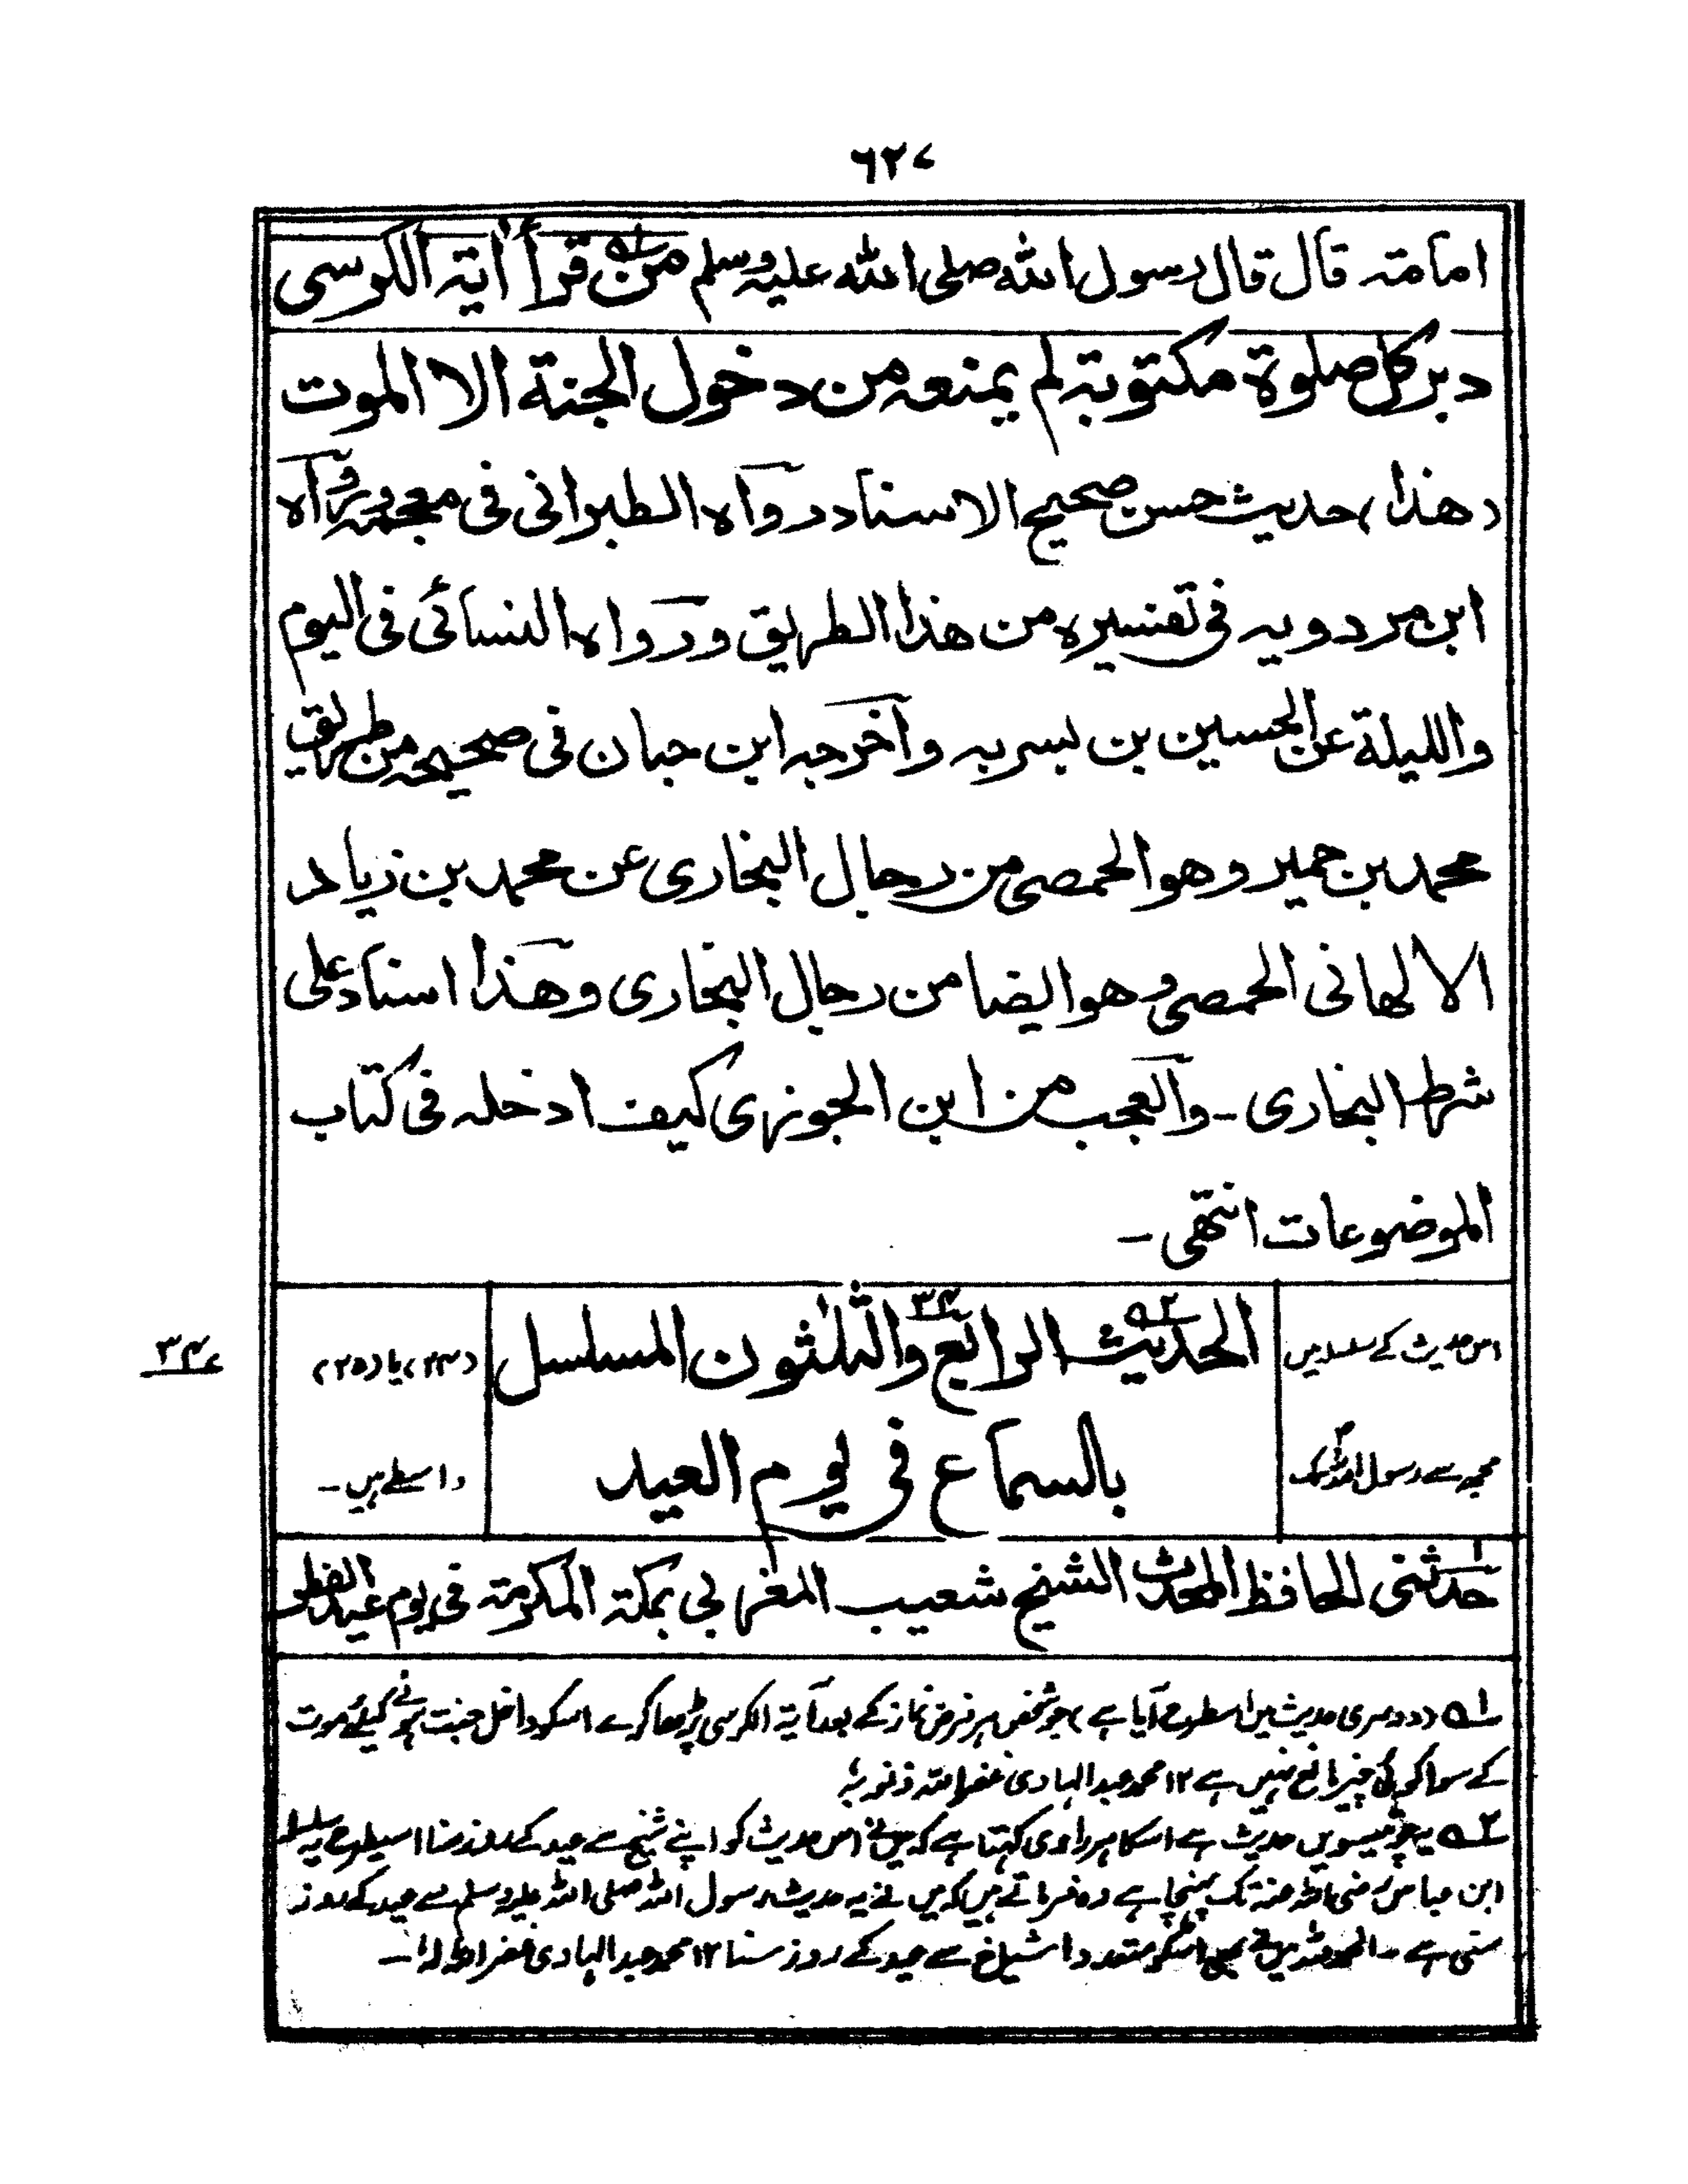 ۶۲۷
امامۃ قال قال رسول اللہ صلی اللہ علیہ وسلم من لہ قرأ اٰیۃ الکرسی
دبر کل صلوۃ مکتوبۃ لم یمنعہ من دخول الجنۃ الا الموت
(ھذا) حدیث حسن صحیح الاسناد رواہ الطبرانی فی معجمہ ورواہ
ابن مردویہ فی تفسیرہ من ھذا الطریق ورواہ النسائی فی الیوم
واللیلۃ عن الحسین بن بسر بہ واخرجہ ابن حبان فی صحیحہ من طریق
محمد بن حمیر وھو الحمصی من رجال البخاری عن محمد بن زیاد
الالھانی الحمصی وھو ایضا من رجال البخاری وھذا اسناد علی
شرط البخاری ۔ والعجب من ابن الجوزی کیف ادخلہ فی کتاب
الموضوعات انتھی ۔
اس حدیث کے سلسلہ میں
الحدیث ۲ہ الرابع ۳۴ والثلٰثون المسلسل
(۲۴) یا (۲۵)
۳۴
مجھ سے رسول اللہؐ تک
بالسماع فی یوم العید
واسطے ہیں ۔
حدثنی الحافظ المحدث الشیخ شعیب المغربی بمکۃ المکرمۃ فی یوم عید الفطر
۱ہ (دوسری حدیث میں اسطرح آیا ہے) جو شخص ہر فرض نماز کے بعد آیۃ الکرسی پڑھا کرے اسکو داخل جنت ہونے کیلئے موت
کے سوا کوئی چیز مانع نہیں ہے ۱۲ محمد عبد الہادی غفر اللہ ذنوبہ
۲ہ یہ چونتیسویں حدیث ہے اسکا ہر راوی کہتا ہے کہ میں نے اس حدیث کو اپنے شیخ سے عید کے روز سنا اسیطرح یہ سلسلہ
ابن عباس رضی اللہ عنہ تک پہنچا ہے وہ فرماتے ہیں کہ میں نے یہ حدیث رسول اللہ صلی اللہ علیہ وسلم سے عید کے روز
سنی ہے ۔ الحمد للہ میں نے بھی اسکو متعدد اشیاخ سے عید کے روز سنا ۱۲ محمد عبد الہادی غفر اللہ لہ ۔